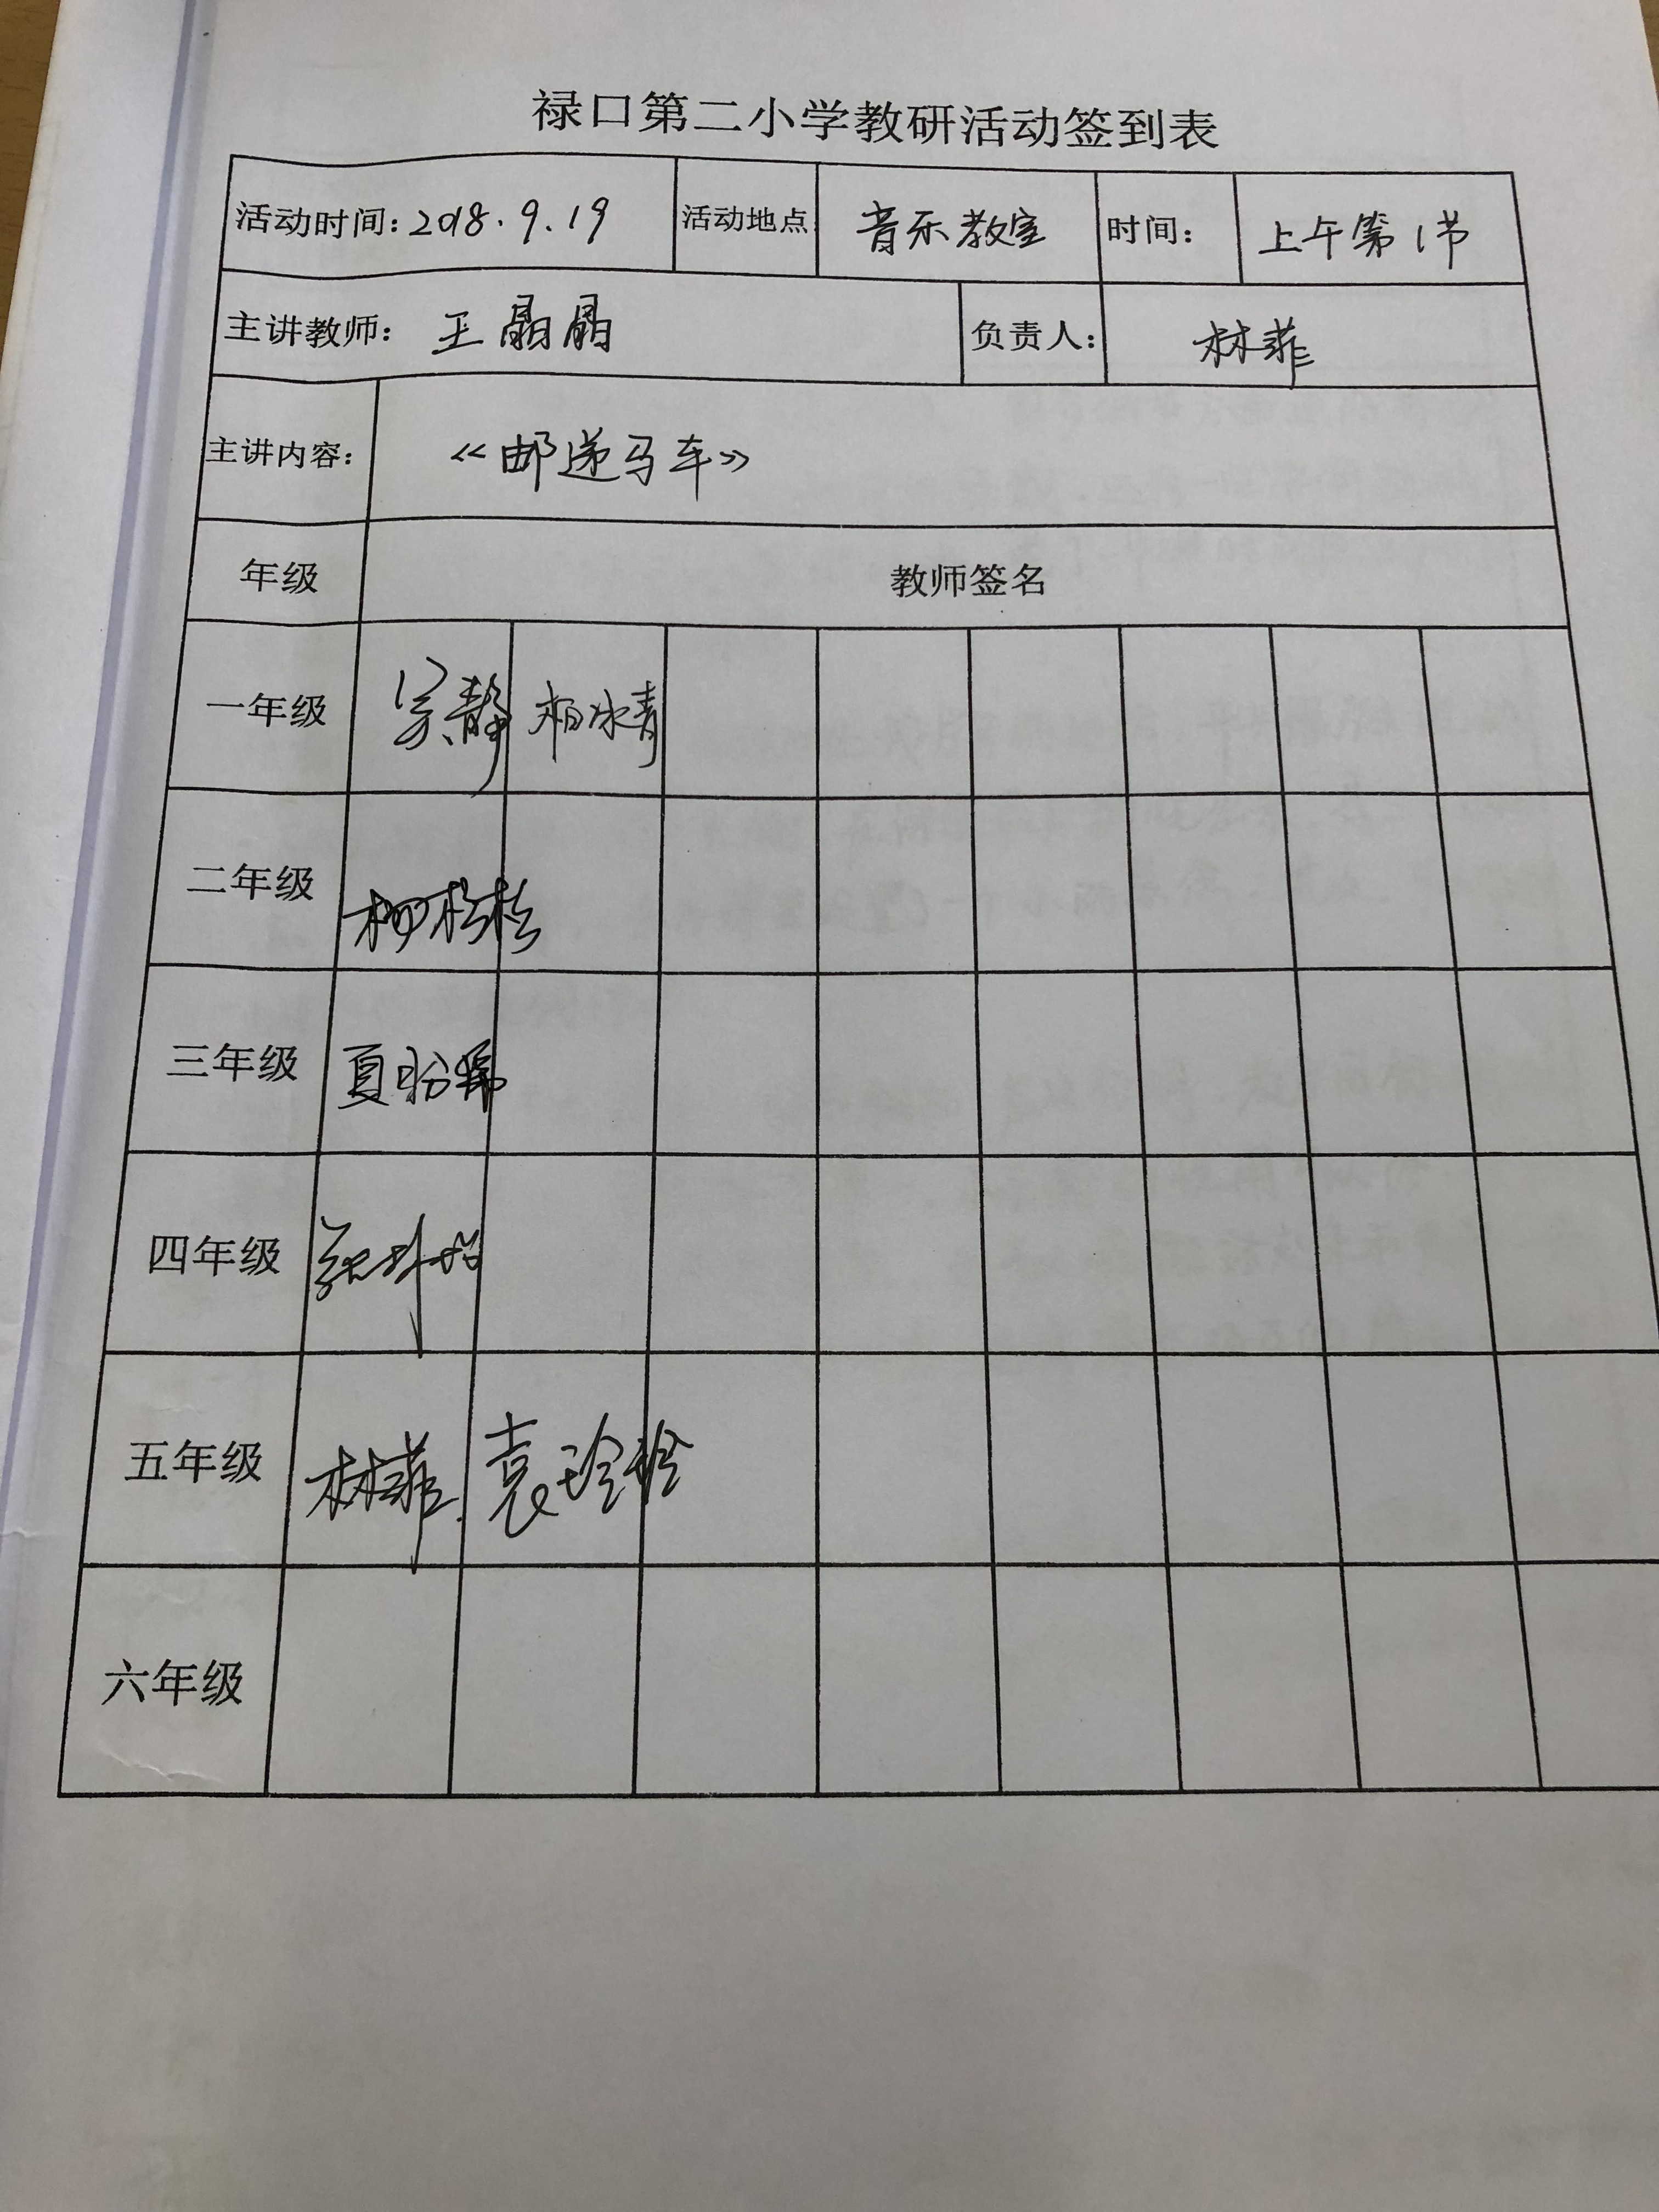 禄口第二小学教研活动签到表
活动时间：2018.9.19 活动地点 音乐教室 时间： 上午第1节
主讲教师： 王晶晶 负责人： 林菲
主讲内容： 《邮递马车》
年级 教师签名
一年级 静 柏冰青
二年级 柳松松
三年级 夏盼
四年级
五年级 林菲 袁玲玲
六年级